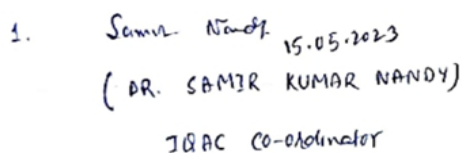 1. Samir Nandy 15.05.2023
(DR. SAMIR KUMAR NANDY)
IQAC Co-ordinator